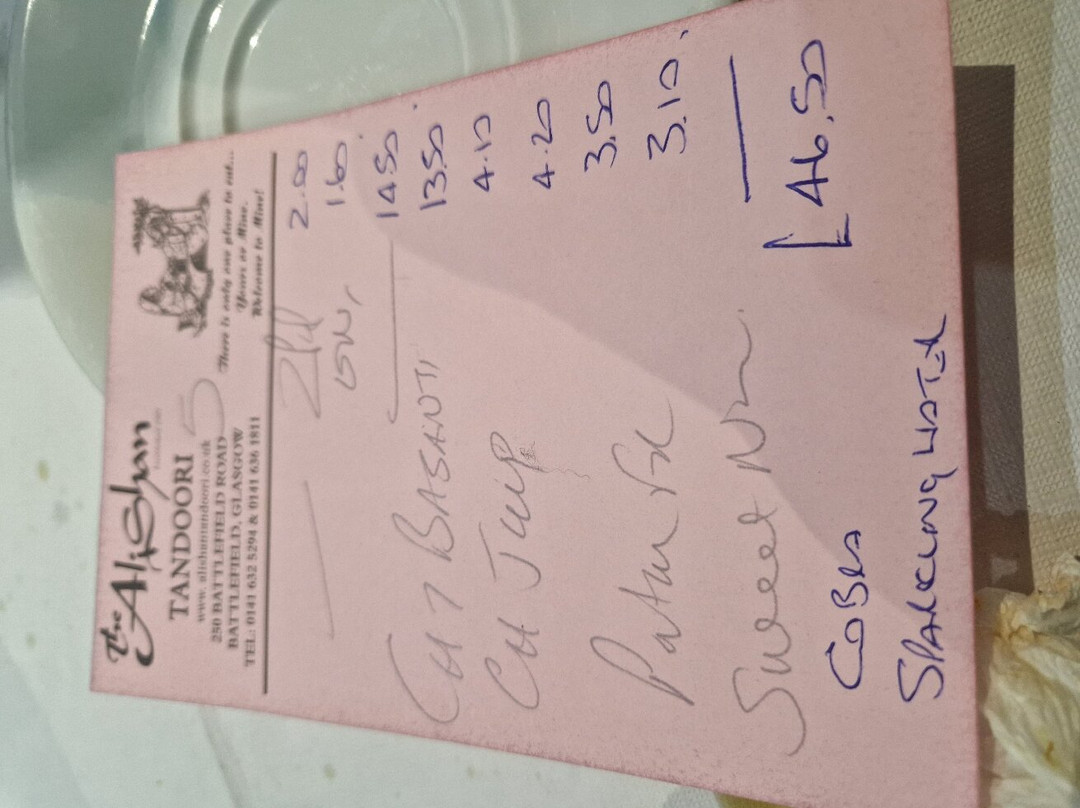 The Alisham
TANDOORI
www.alishamtandoori.co.uk
250 BATTLEFIELD ROAD
BATTLEFIELD, GLASGOW
TEL: 0141 632 5294 & 0141 636 1811
There is only one place to eat...
Yours or Mine.
Welcome to Mine!
5
2.00
1.60
CH BASANTI 14.50
CH 13.50
4.10
4.20
Sweet 3.50
COBRA 3.10
SPARKLING WATER
46.50